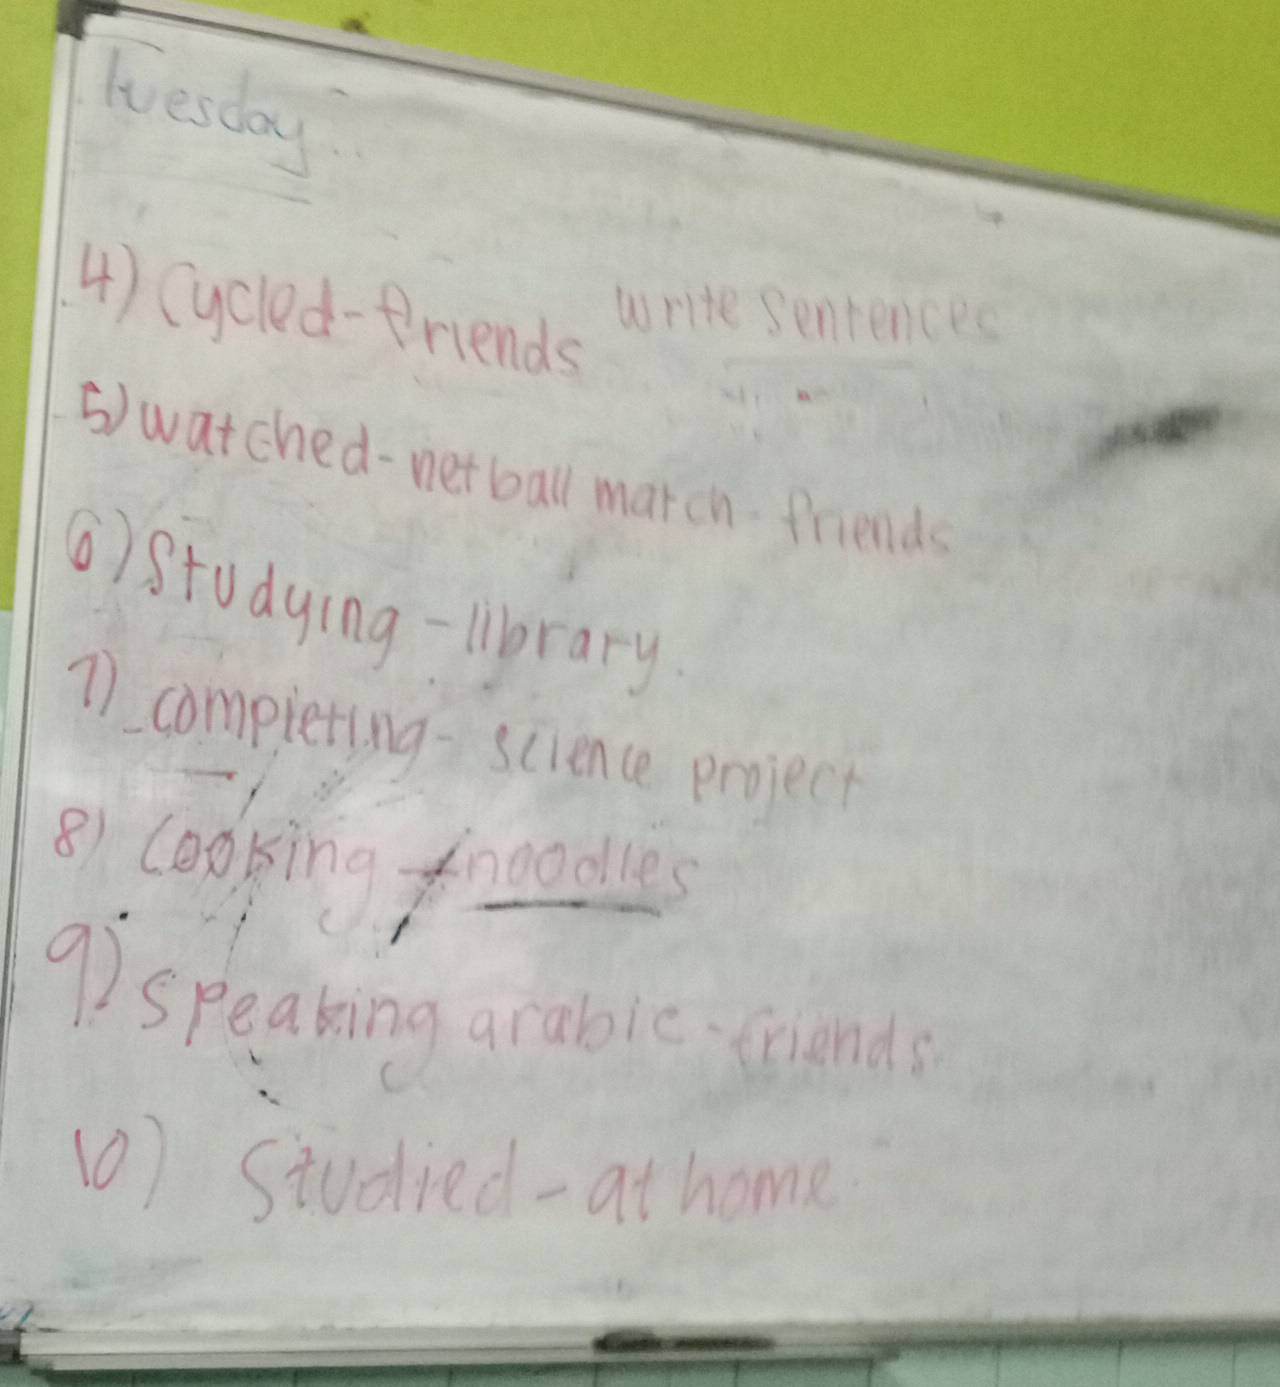 Tuesday
write sentences
4) Cycled - friends
5) watched - netball match - friends
6) Studying - library.
7) completing - science project
8) Cooking - noodles
9) speaking arabic - friends
10) Studied - at home